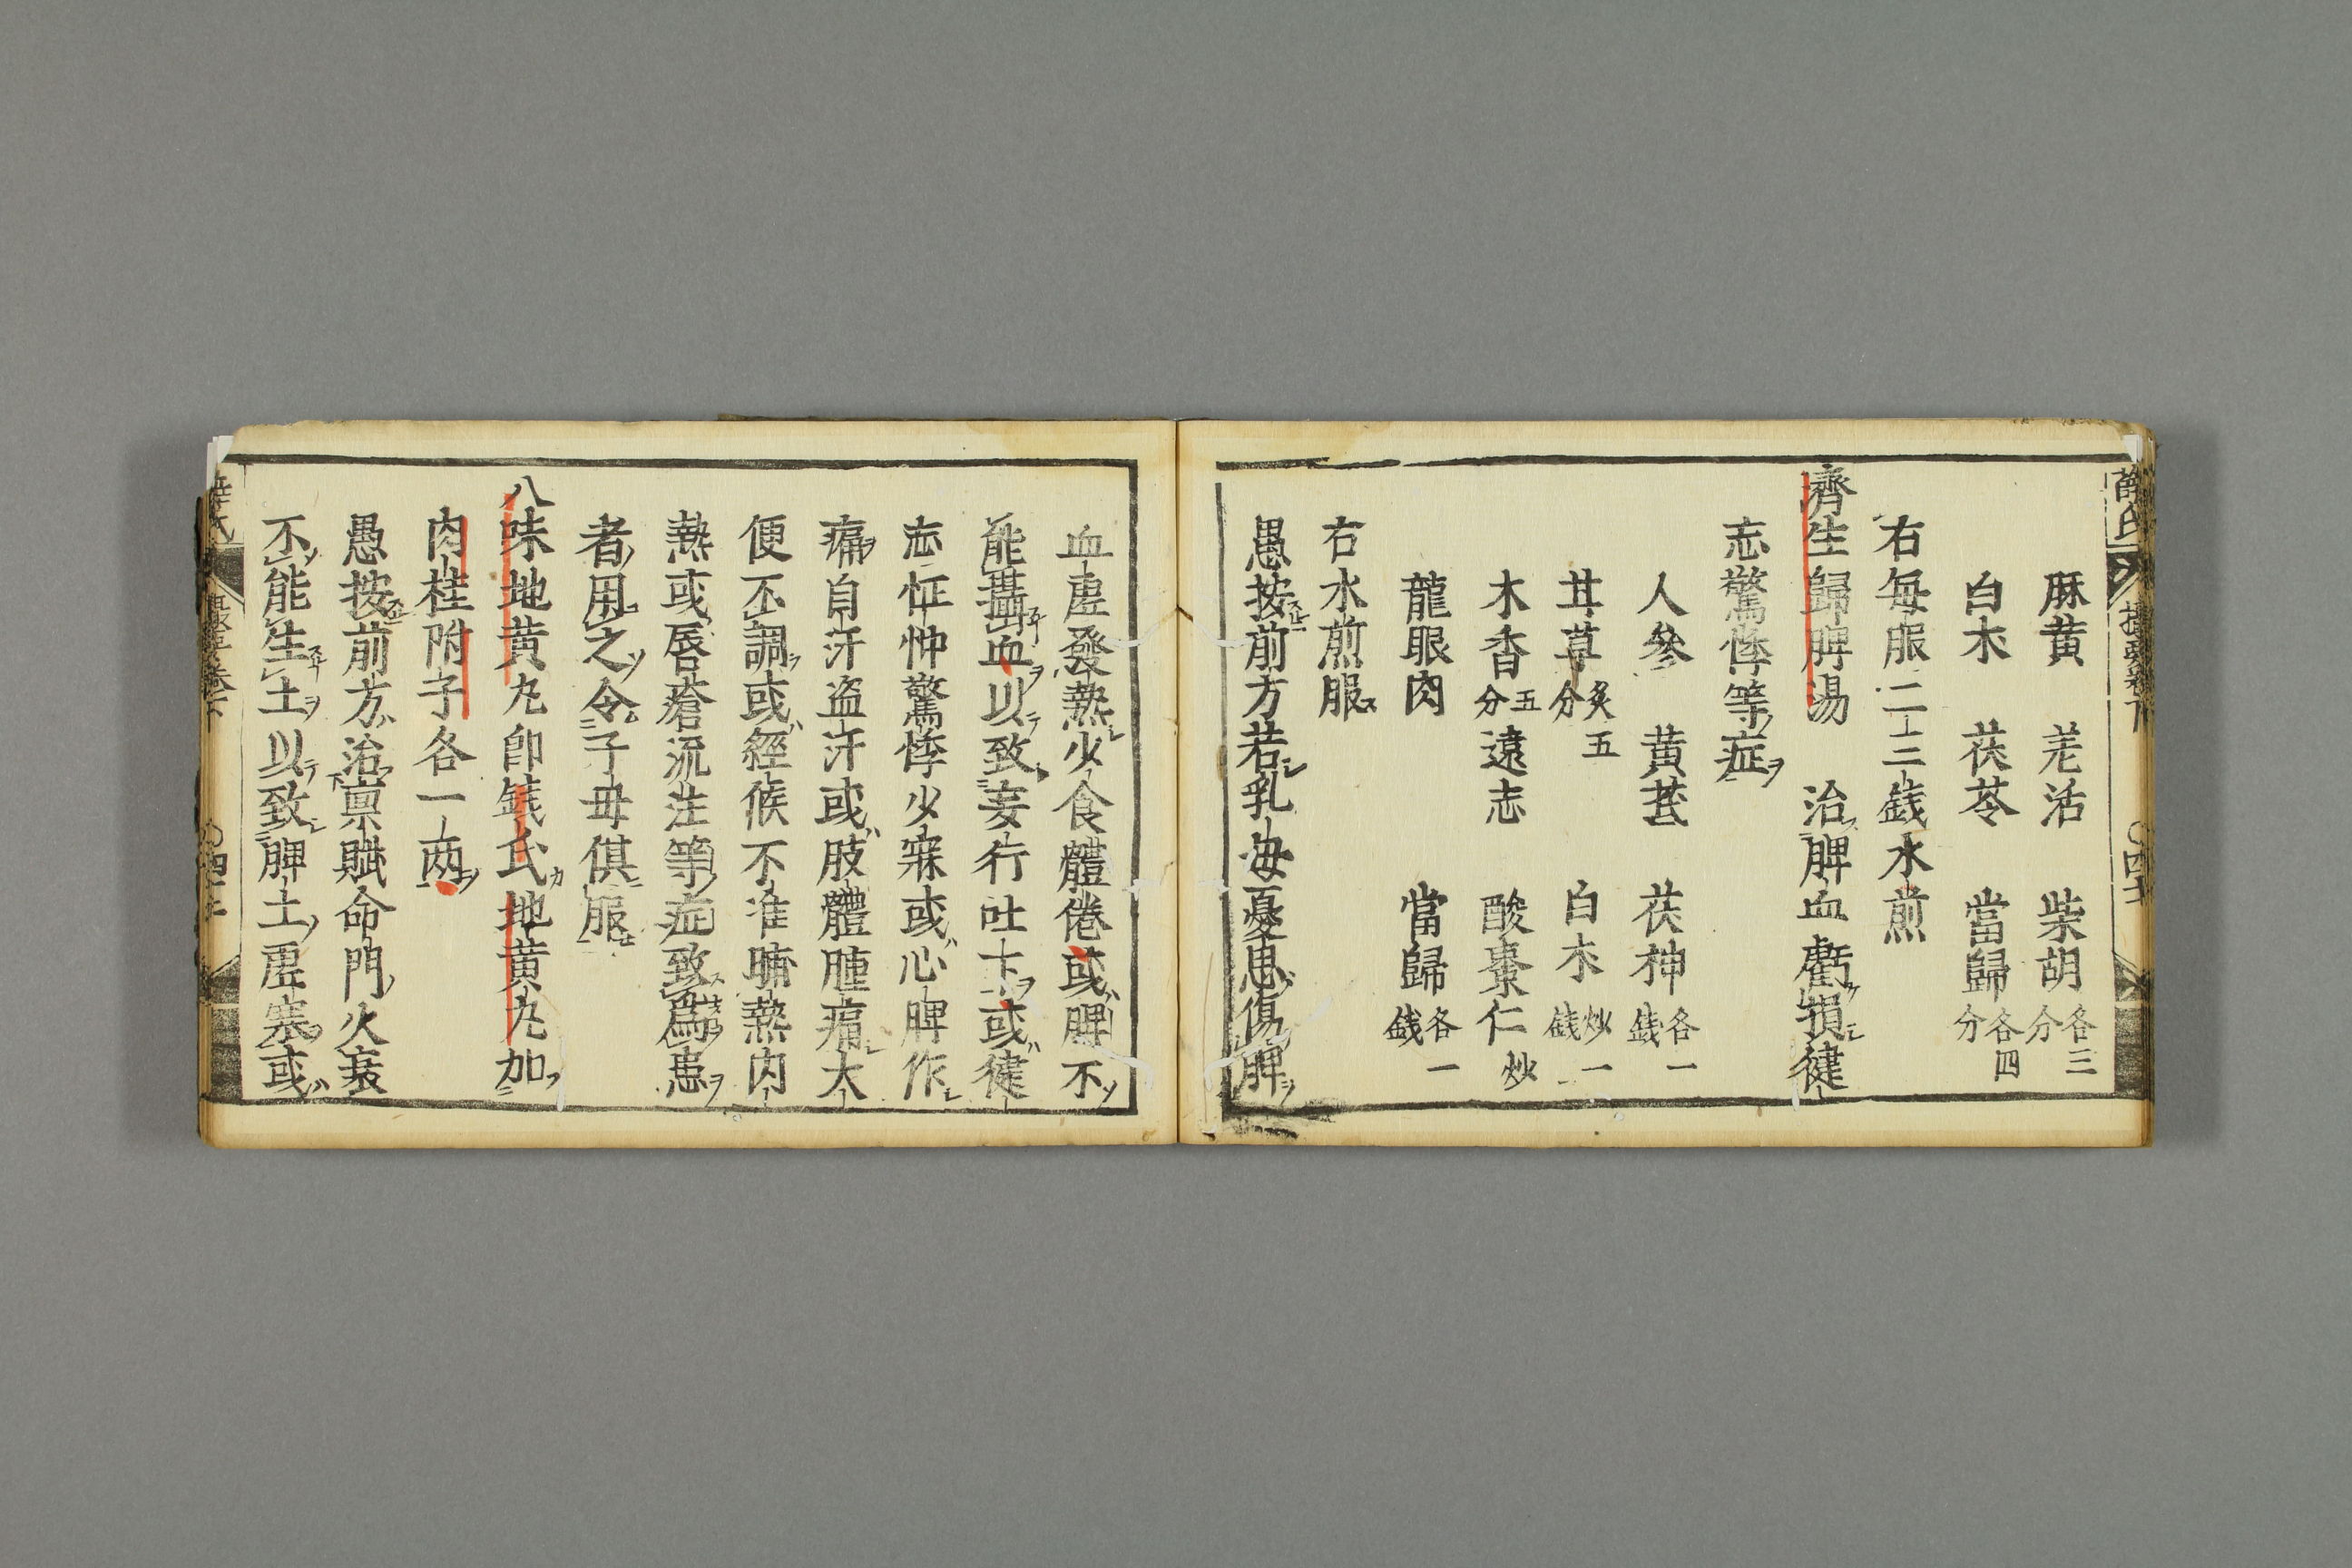 麻黄　羌活　柴胡各三分
白朮　茯苓　當歸各四分
右毎服二三錢水煎
濟生歸脾湯　治脾血虧損健
忘驚悸等症
人參　黄茋　茯神各一錢
甘草炙五分　白朮炒一錢
木香五分　遠志　酸棗仁炒
龍眼肉　當歸各一錢
右水煎服
愚按前方若乳母憂思傷脾
血虚發熱少食體倦或脾不
能攝血以致妄行吐下或健
忘怔忡驚悸少寐或心脾作
痛自汗盗汗或肢體腫痛大
便不調或經候不准晡熱内
熱或唇瘡流注等症致爲患
者用之令子母俱服
八味地黄丸即錢氏地黄丸加
肉桂附子各一兩
愚按前方治禀賦命門火衰
不能生土以致脾土虚寒或